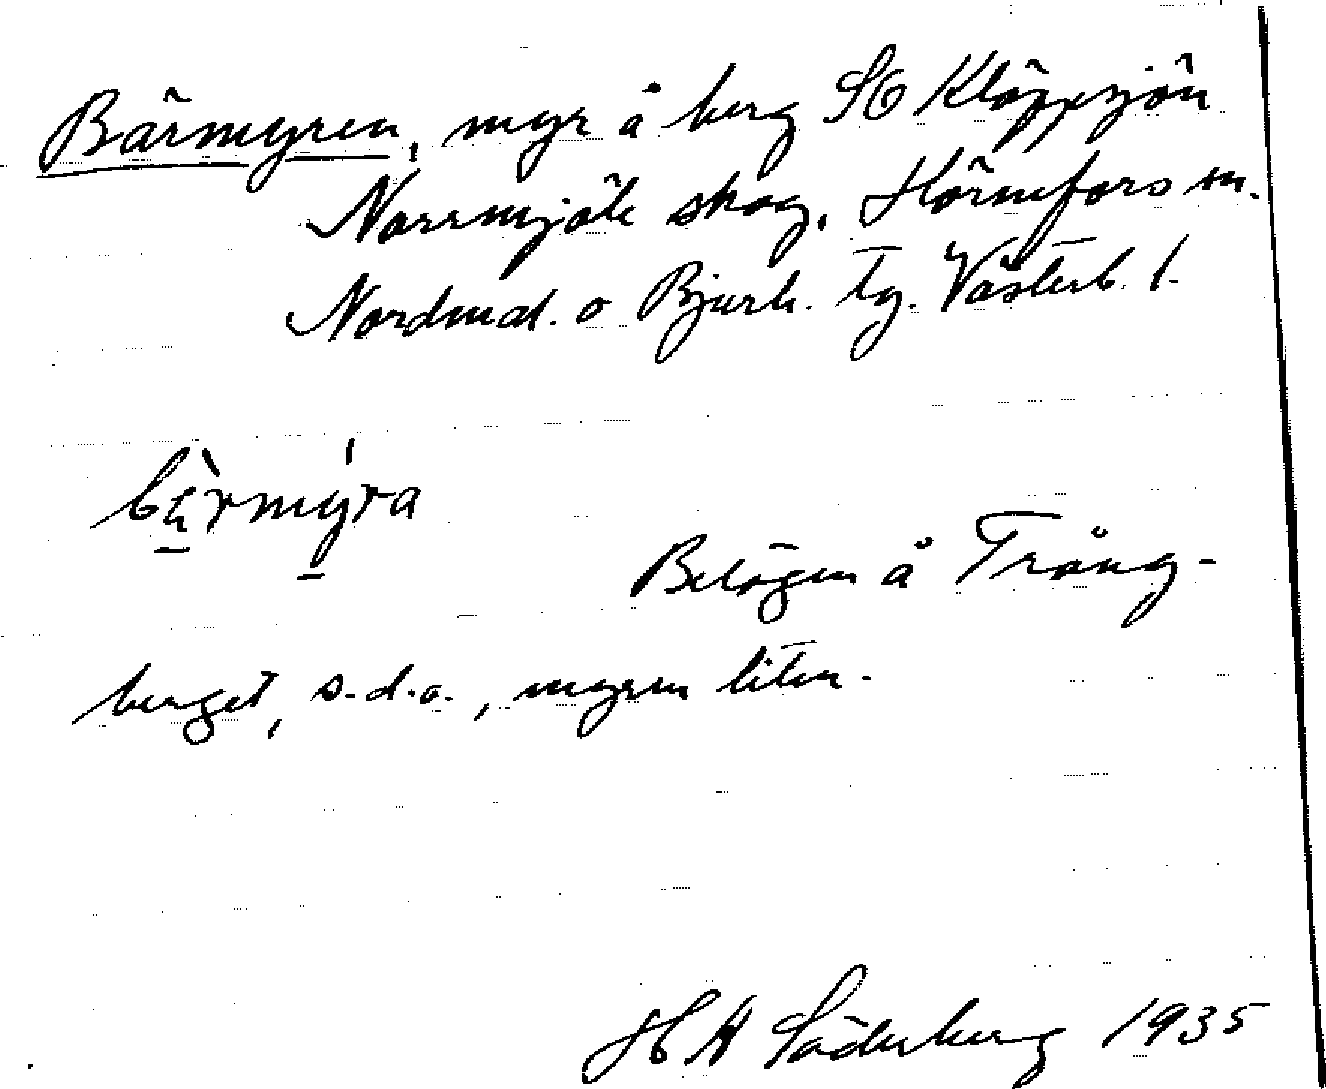 Bärmyren, myr å berg SO Kläppsjön
Norrmjöle skog, Hörnefors sn.
Nordmal. o Bjurh. tg. Västerb. l.
bärmýra
Belägen å Trång-
berget, s.d.o., myren liten.
H A Söderberg 1935